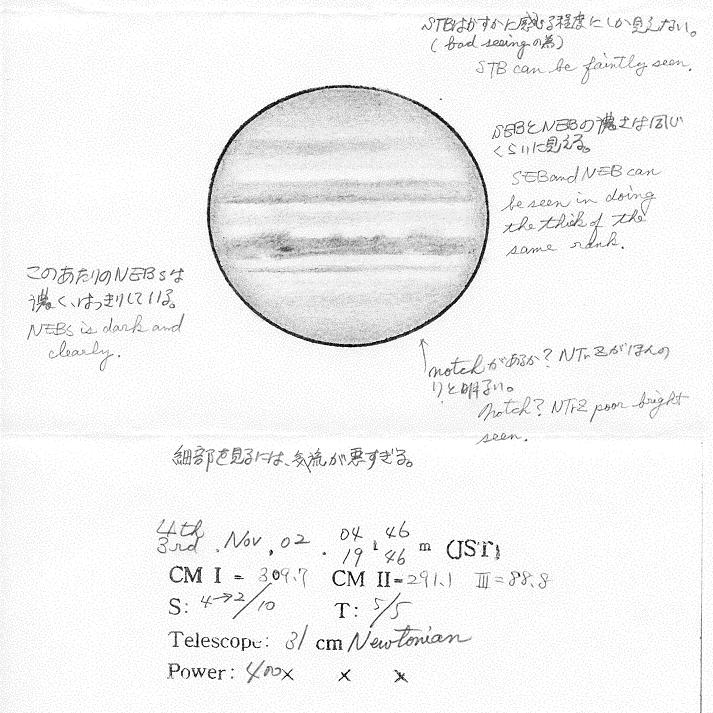 STBはかすかに感じる程度にしか見えない。
(bad seeingの為)
STB can be faintly seen.
SEBとNEBの濃さは同じ
くらいに見える。
SEB and NEB can
be seen in doing
the thick of the
same rank.
このあたりのNEBsは
濃く、はっきりしている。
NEBs is dark and
clearly.
notchがあるか? NTrZがほんの
りと明るい。
notch? NTrZ poor bright
seen.
細部を見るには、気流が悪すぎる。
4th 04 46
3rd . Nov , 02 . 19 h 46 m (JST)
CM I = 309.7 CM II = 291.1 III = 88.8
S: 4→2/10 T: 5/5
Telescope: 31 cm Newtonian
Power: 400x x x